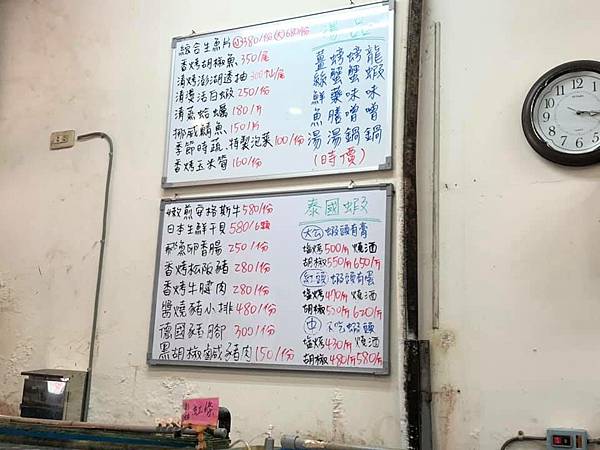 綜合生魚片 小380/份 大680/份
香烤胡椒魚 350/尾
清烤澎湖透抽 300/尾
清燙活白蝦 250/份
清蒸蛤蠣 180/斤
挪威鯖魚 150/片
季節時蔬.特製泡菜 100/份
香烤玉米筍 160/份
湯品
薑絲鮮魚湯
烤蟹藥膳湯
烤蟹味噌鍋
龍蝦味噌鍋
(時價)
嫩煎安格斯牛 580/份
日本生鮮干貝 580/6顆
飛魚卵香腸 250/份
香烤松阪豬 280/份
香烤牛腱肉 280/份
醬燒豬小排 480/份
德國豬腳 300/份
黑胡椒鹹豬肉 150/份
泰國蝦
大公 蝦頭有膏
塩烤 500/斤 燒酒
胡椒 550/斤 650/斤
紅頭 蝦頭有蛋
塩烤 470/斤 燒酒
胡椒 520/斤 620/斤
中 不吃蝦頭
塩烤 430/斤 燒酒
胡椒 480/斤 580/斤
紅條